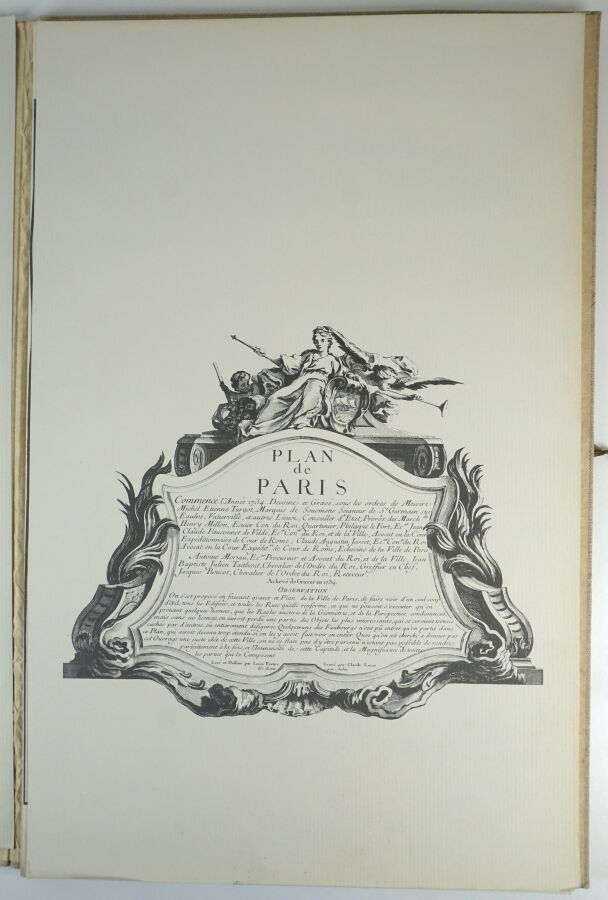 PLAN
de
PARIS
Commencé l'Année 1734. Dessiné et Gravé, sous les ordres de Messire
Michel Etienne Turgot, Marquis de Sousmons Seigneur de St. Germain sur
Eaulne, Vatierville, et autres Lieux, Conseiller d'Etat, Prevôt des March.ds
Henry Millon, Ecuier Con. du Roi, Quartinier, Philippe le Fort, Ec.er Jean
Claude Fauconnet de Vildé, Ec.er Con.er du Roi, et de la Ville, Avocat en la Cour
Expéditionnaire de Cour de Rome, Claude Augustin Josset, Ec.er Con.er du Roi
Avocat en la Cour Expédit.re de Cour de Rome, Echevins de la Ville de Paris
Antoine Moriau, Ec.er Procureur et Avocat du Roi, et de la Ville, Jean
Baptiste Julien Taitbout, Chevalier de l'Ordre du Roi, Greffier en Chef,
Jacques Boucot, Chevalier de l'Ordre du Roi, Receveur.
Achevé de Graver en 1739.
OBSERVATION
On s'est proposé en faisant graver ce Plan de la Ville de Paris, de faire voir d'un seul coup
d'œil, tous les Edifices, et toutes les Rues qu'elle renferme, ce qui ne pouvoit s'executer qu'en
prenant quelques licences, que les Regles austeres de la Géométrie, et de la Perspective condamnent,
mais sans ces licences, on auroit perdu une partie des Objets les plus interessants, qui se seroient trouvés
cachés par d'autres, ou entierement défigurés Quelques uns des Fauxbourgs n'ont pû entrer qu'en partie dans
ce Plan, qui seroit devenu trop étendu si on les y avoit fait voir en entier. Quoi qu'on ait cherché à donner par
cet Ouvrage une juste idée de cette Ville, on ne se flate pas d'y être parvenu n'étant pas possible de rendre
parfaitement à la fois, et l'Immensité de cette Capitale, et la Magnificence de toutes
les parties qui la Composent
Levé et Dessiné par Louis Bretez Gravé par Claude Lucas